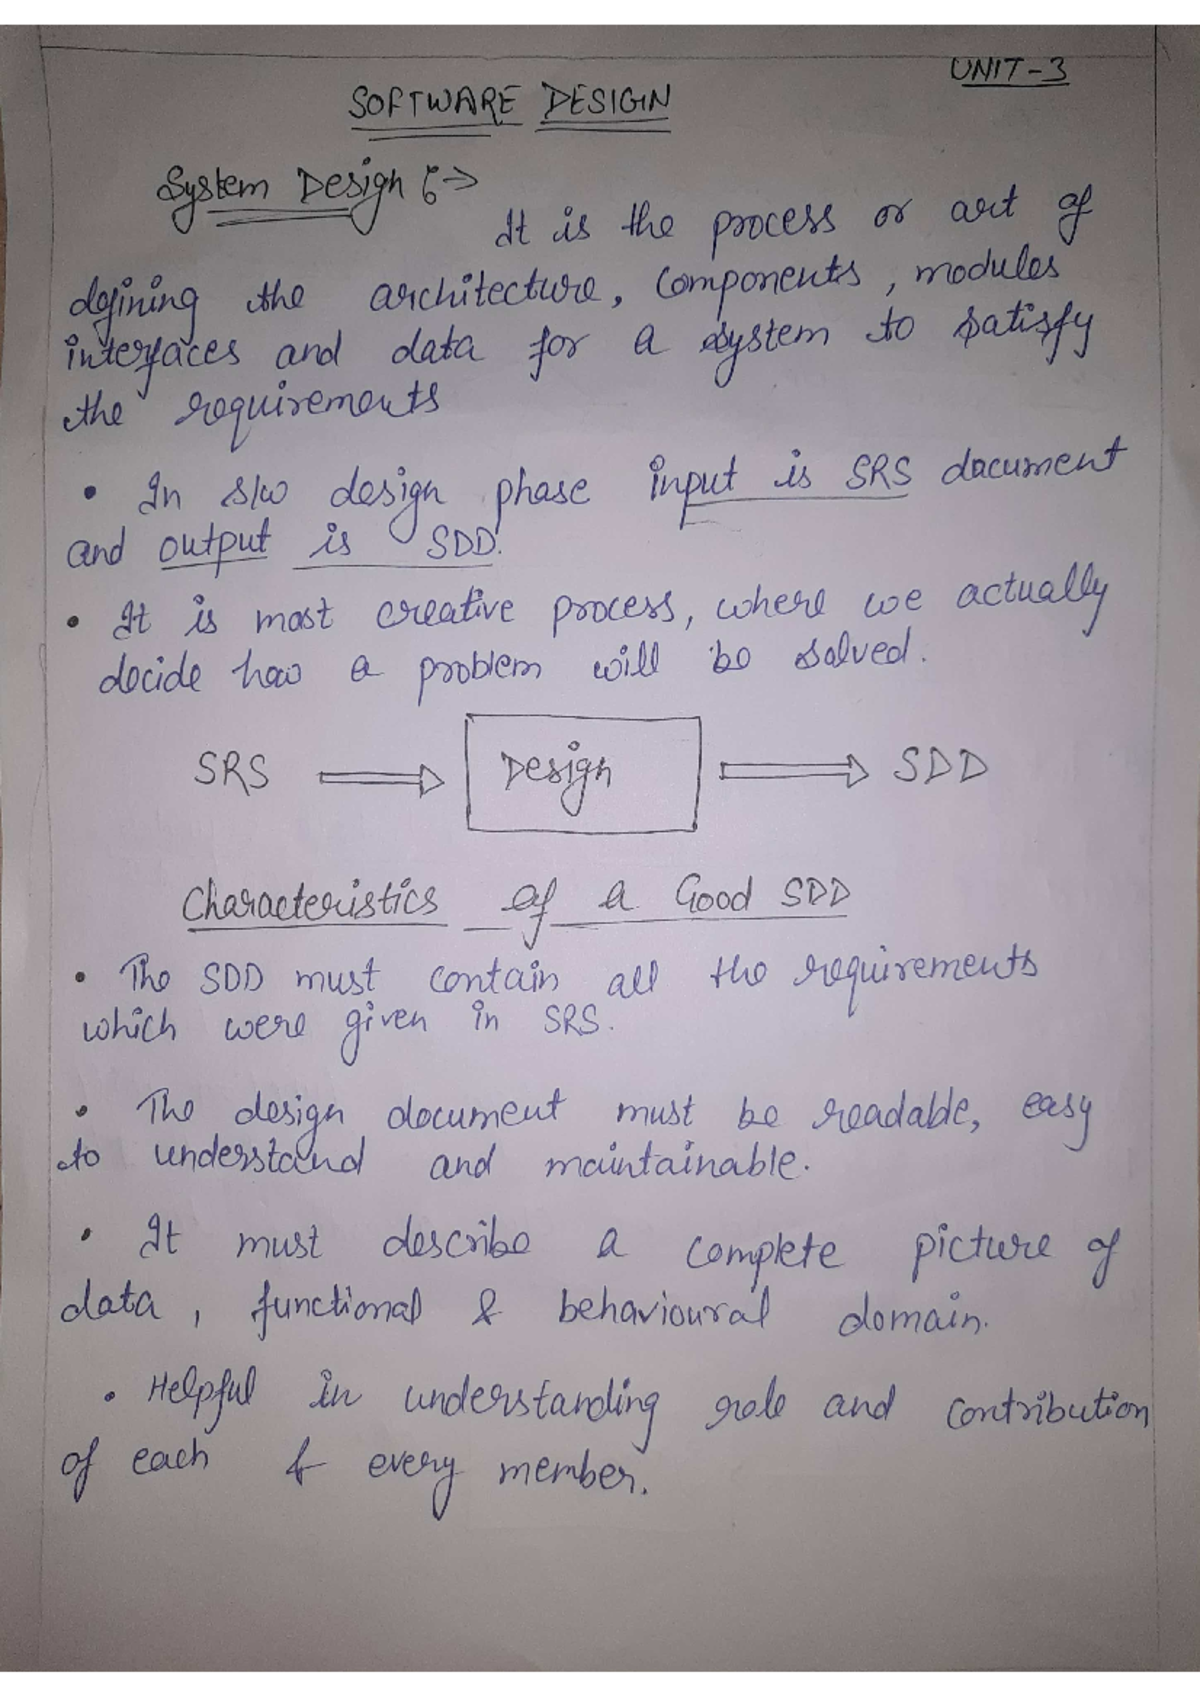 UNIT-3
SOFTWARE DESIGN
System Design :→
It is the process or art of
defining the architecture, components, modules
interfaces and data for a system to satisfy
the requirements
• In s/w design phase input is SRS document
and output is SDD.
• It is most creative process, where we actually
decide how a problem will be solved.
SRS ⇒ Design ⇒ SDD
Characteristics of a Good SDD
• The SDD must contain all the requirements
which were given in SRS.
• The design document must be readable, easy
to understand and maintainable.
• It must describe a complete picture of
data, functional & behavioural domain.
• Helpful in understanding role and contribution
of each & every member.